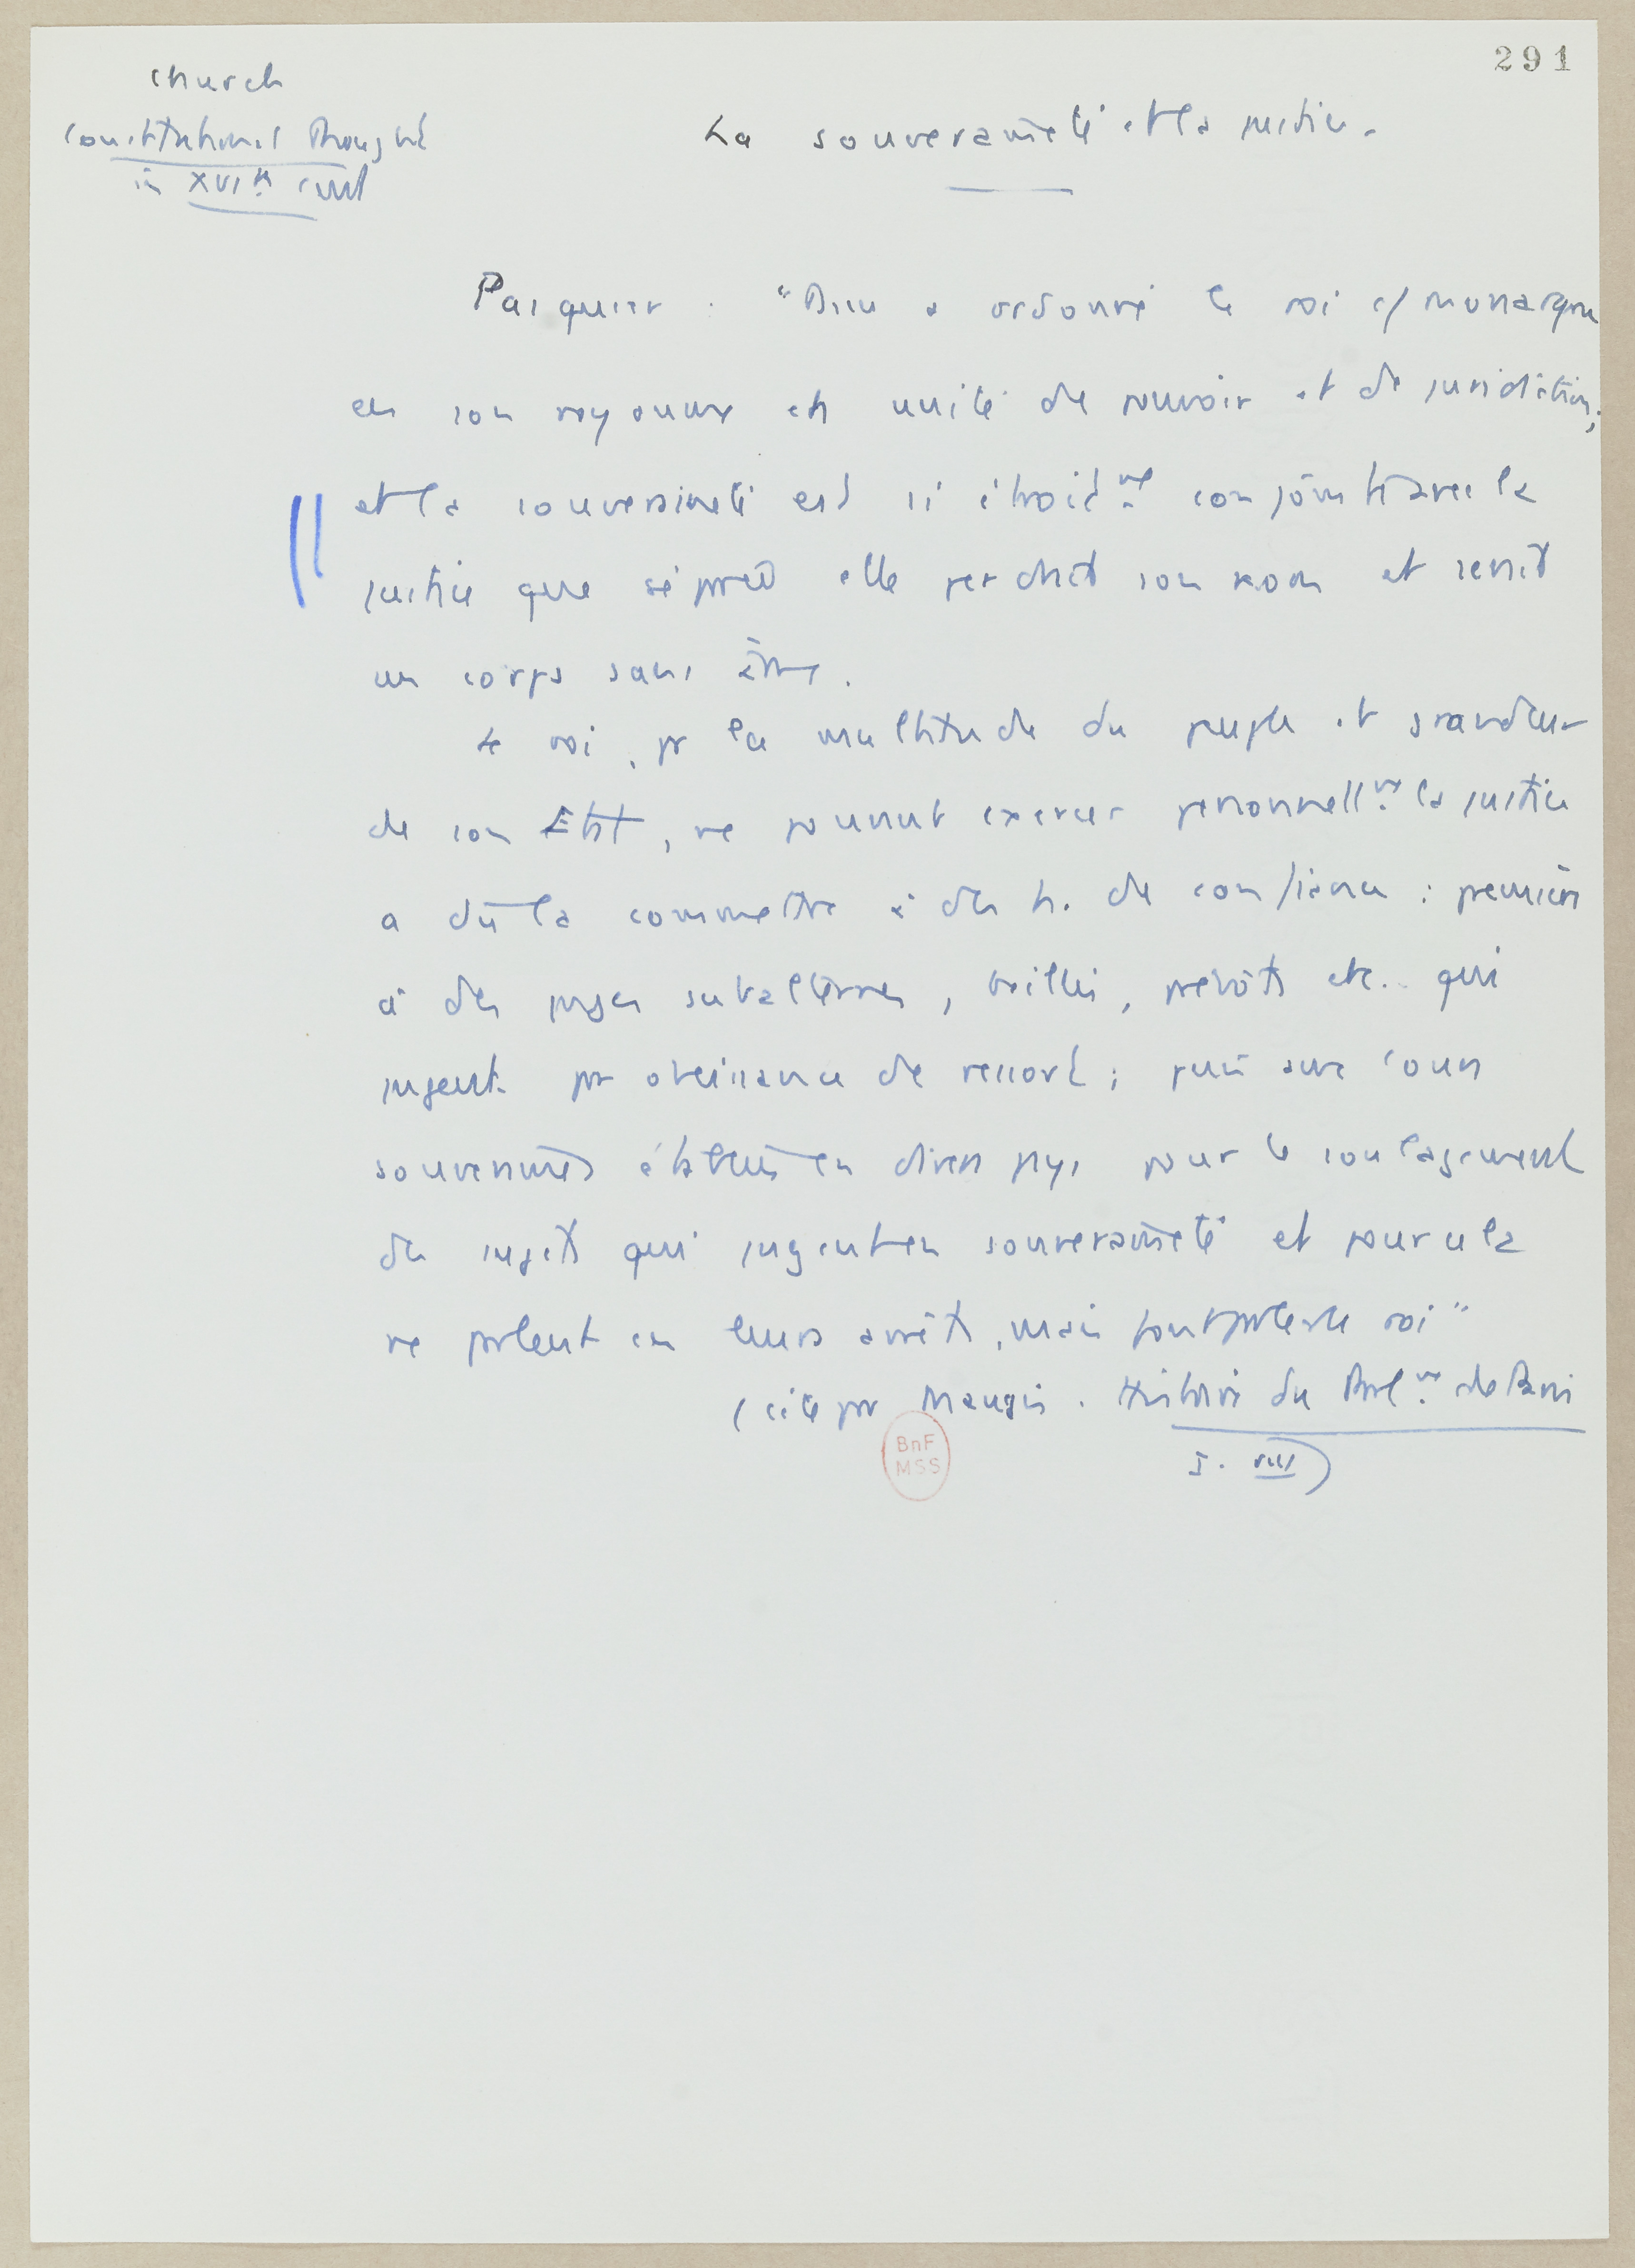 291
Church
Constitutional Thought
in XVIth cent
La souveraineté et la justice.
Pasquier : "Dieu a ordonné le roi c/ monarque
en son royaume en unité de pouvoir et de juridiction;
et la souveraineté est si étroitmt conjointe avec la
justice que séparée elle perdrait son nom et serait
un corps sans âme.
Le roi, pr la multitude du peuple et grandeur
de son Etat, ne pouvant exercer personnellmt la justice
a dû la commettre à des h. de confiance : premièrt
à des juges subalternes, baillis, prévôts etc.. qui
jugent par obéissance de ressort; puis aux Cours
souveraines établies en divers pays pour le soulagement
des sujets qui jugent en souveraineté et pour cela
ne parlent en leurs arrêts, mais font parler le roi"
(cité par Maugis. Histoire du Parlmt de Paris
I. VIII)
BnF
MSS